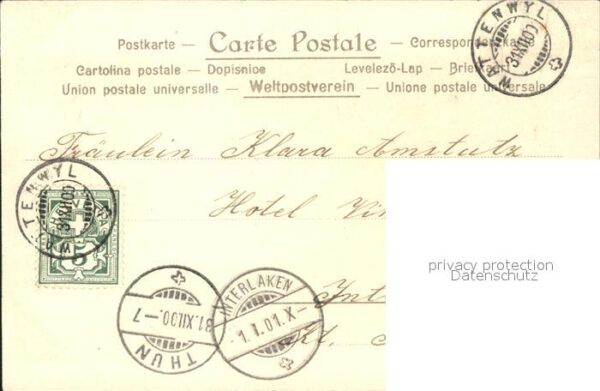 Postkarte — Carte Postale — Correspondenzkarte
Cartolina postale — Dopisnice Levelező-Lap — Briefkaart
Union postale universelle — Weltpostverein — Unione postale universale
WATTENWYL
31.XII.00
Fräulein Klara Amstutz
Hotel
TENWYL
31.XII.00
5
privacy protection
Datenschutz
THUN
31.XII.00.–7
INTERLAKEN
1.I.01.X–